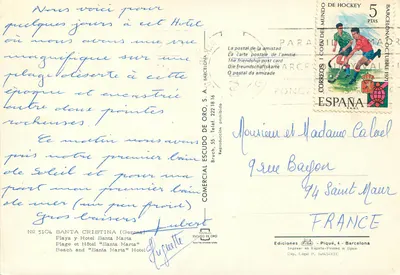 Nous voici pour
quelques jours à cet Hotel
où nous avons une vue
magnifique sur une
plage déserte à cette
époque et encastrée
entre deux pointes
rocheuses.
Ce matin nous avons
pris notre premier bain
de Soleil et pour ma
part mon premier bain
de mer (un peu froid)
Gros baisers
Huguette
Nº 5104 SANTA CRISTINA
Playa y Hotel Santa Marta
Plage et Hôtel "Santa Marta"
Beach and "Santa Marta" Hotel
La postal de la amistad
La carte postale de l'amitié
The friendship post card
Die Freundschaftskarte
O postal da amizade
COMERCIAL ESCUDO DE ORO, S. A. - BARCELONA
Bruch, 55 - Telef. 222 18 16
I COPA DEL MUNDO DE HOCKEY
BARCELONA OCTUBRE 1971
5
PTAS
CORREOS
ESPAÑA
Monsieur et Madame Calvel
9 rue Bacon
94 Saint Maur
FRANCE
Ediciones Piqué, 4 - Barcelona